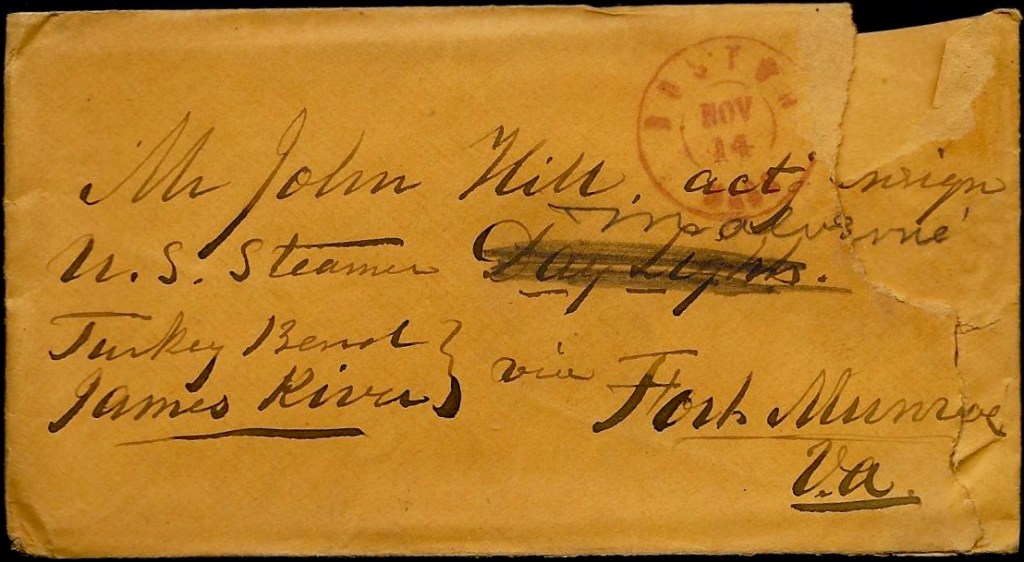 BOSTON
NOV
14
Mr John Hill, act nsign
Malverne
U.S. Steamer Day Light.
Turkey Bend
James River } via Fort Munroe
Va.